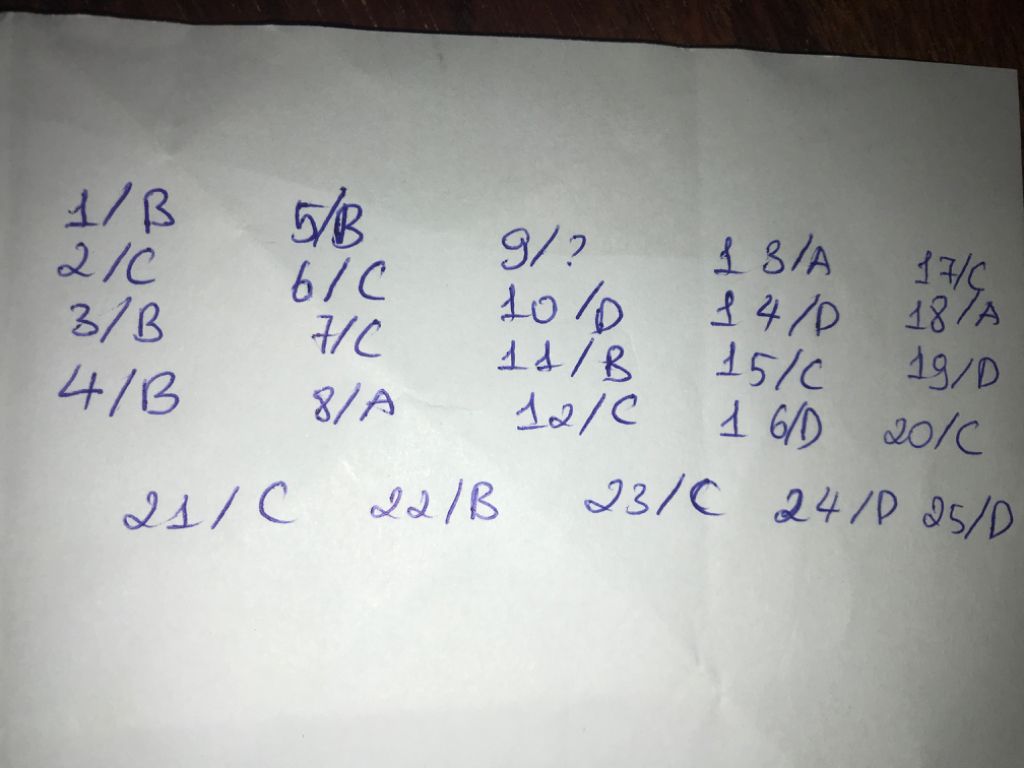 1/B 5/B 9/? 13/A 17/C
2/C 6/C 10/D 14/D 18/A
3/B 7/C 11/B 15/C 19/D
4/B 8/A 12/C 16/D 20/C
21/C 22/B 23/C 24/D 25/D